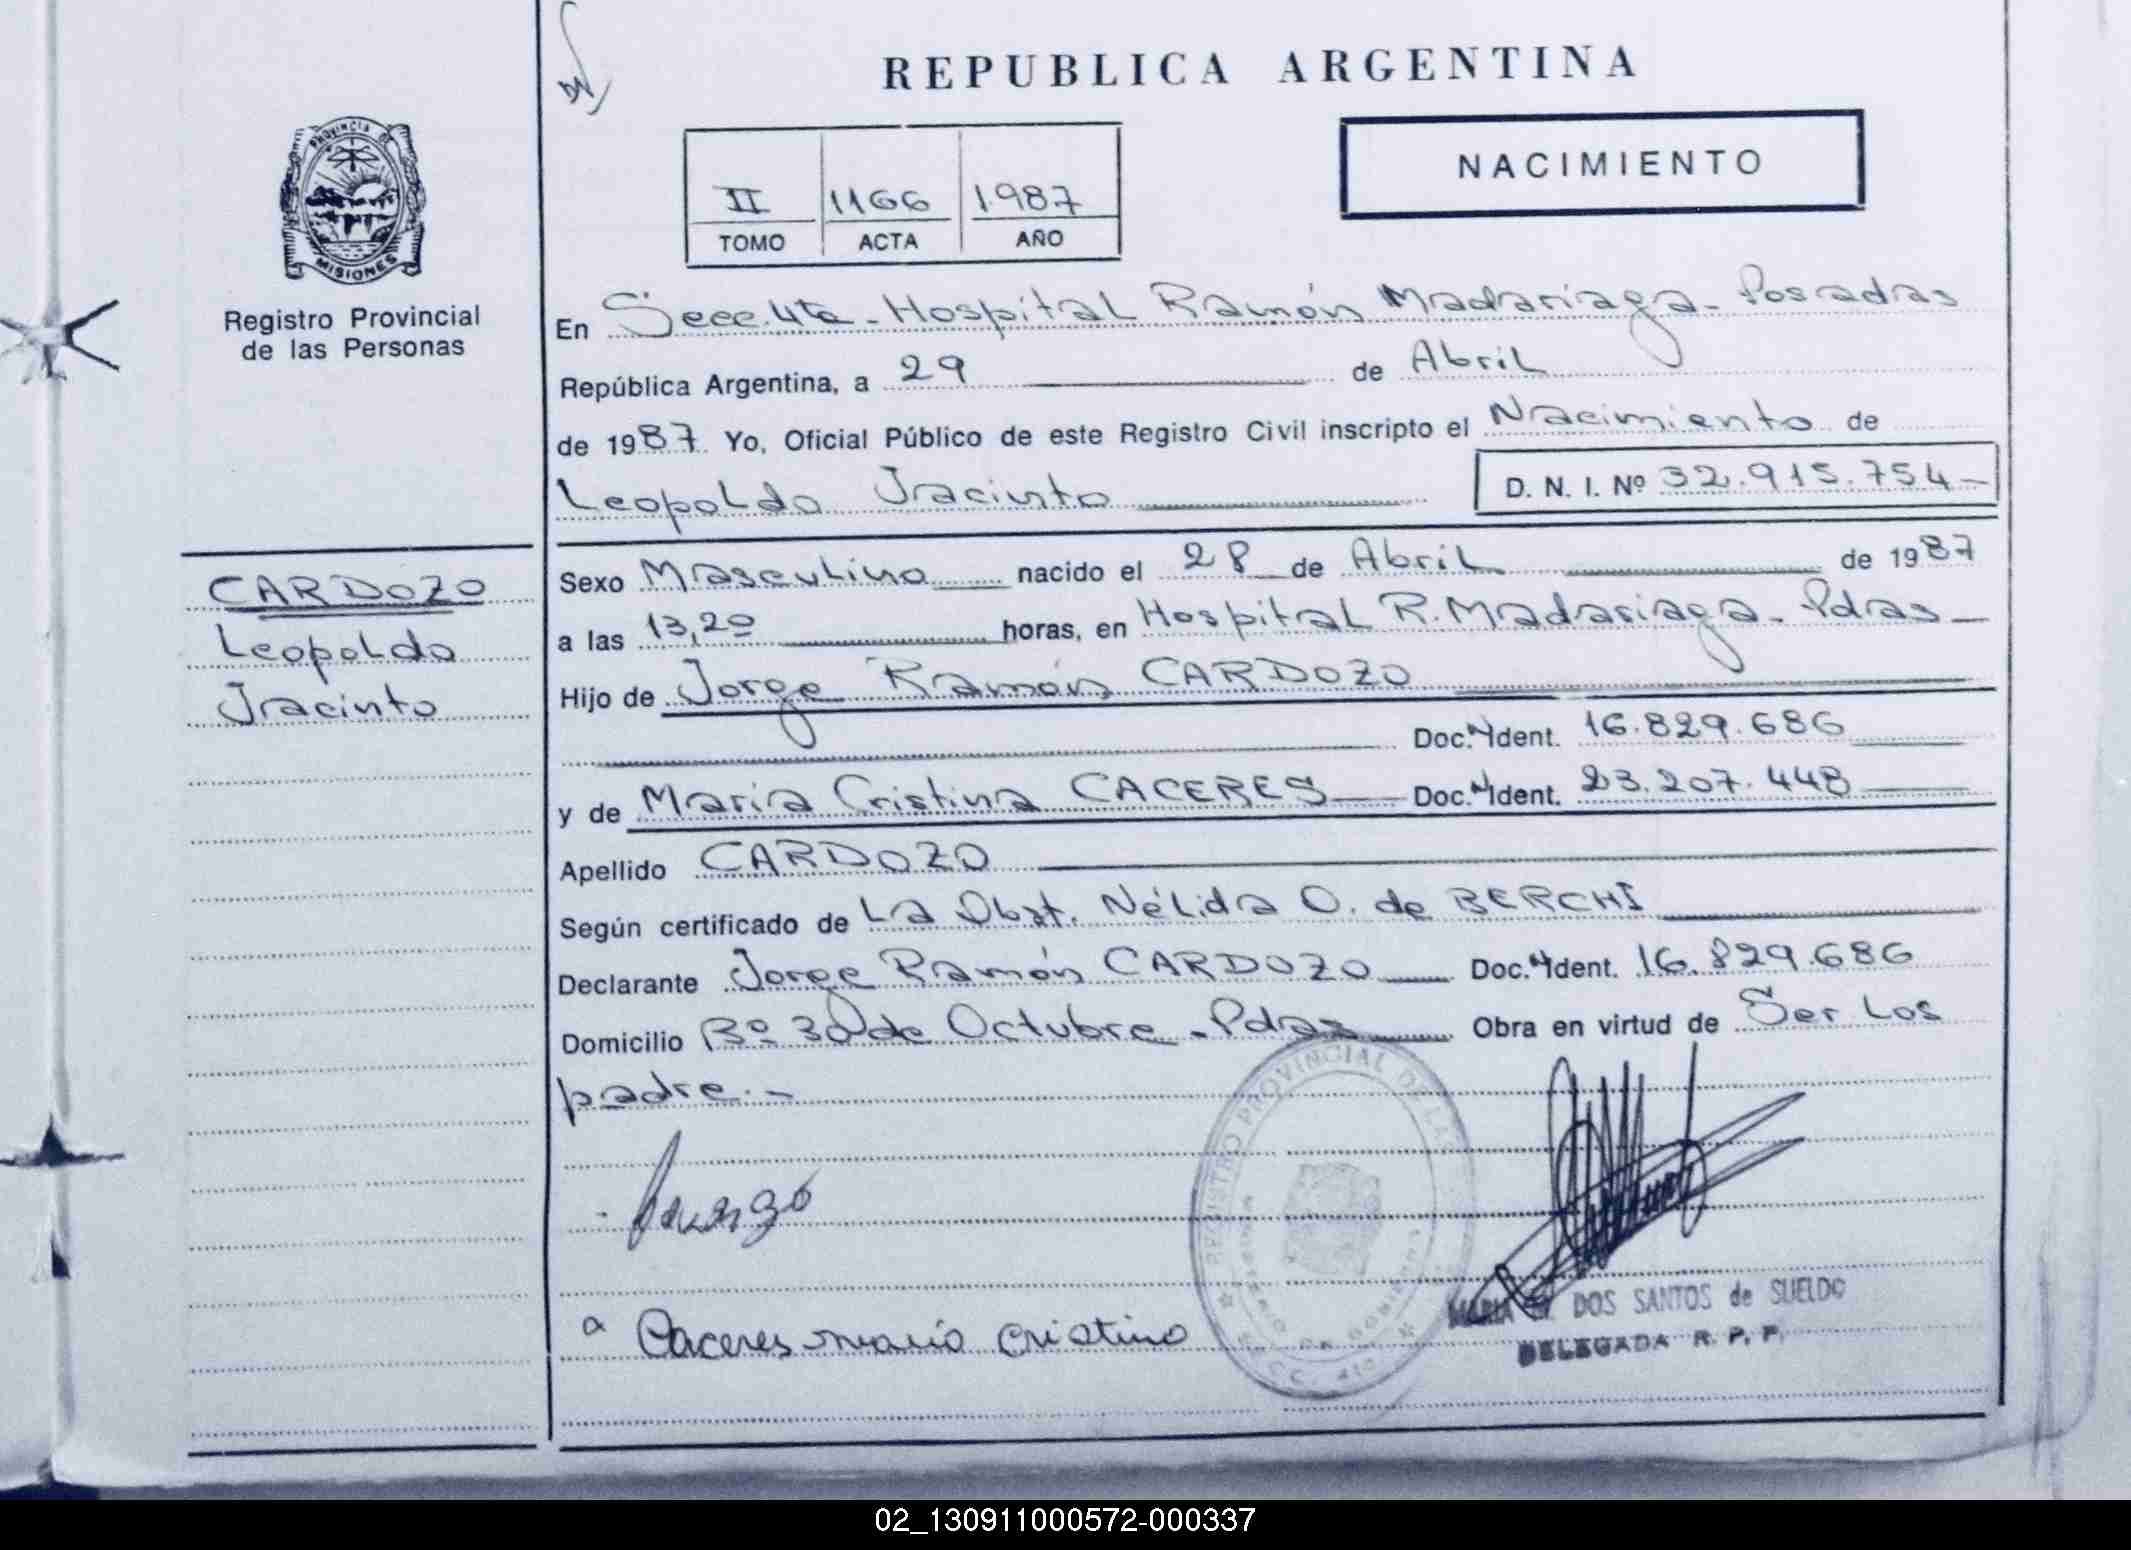 REPUBLICA ARGENTINA
NACIMIENTO
II 1166 1987
TOMO ACTA AÑO
PROVINCIA DE
MISIONES
Registro Provincial
de las Personas
CARDOZO
Leopoldo
Jacinto
En Secc. 4ta - Hospital Ramón Madariaga - Posadas
República Argentina, a 29 de Abril
de 1987 Yo, Oficial Público de este Registro Civil inscripto el Nacimiento de
Leopoldo Jacinto D. N. I. Nº 32.915.754-
Sexo Masculino nacido el 28 de Abril de 1987
a las 13,20 horas, en Hospital R. Madariaga - Pdas -
Hijo de Jorge Ramón CARDOZO
Doc. Ident. 16.829.686
y de María Cristina CACERES Doc. Ident. 23.207.448
Apellido CARDOZO
Según certificado de La Obst. Nélida O. de BERCHI
Declarante Jorge Ramón CARDOZO Doc. Ident. 16.829.686
Domicilio Bº 30 de Octubre - Pdas Obra en virtud de Ser los
padre.-
REGISTRO PROVINCIAL DE LAS
a Caceres maria cristina
MARIA DOS SANTOS de SUELDO
DELEGADA R. P. P.
02_130911000572-000337